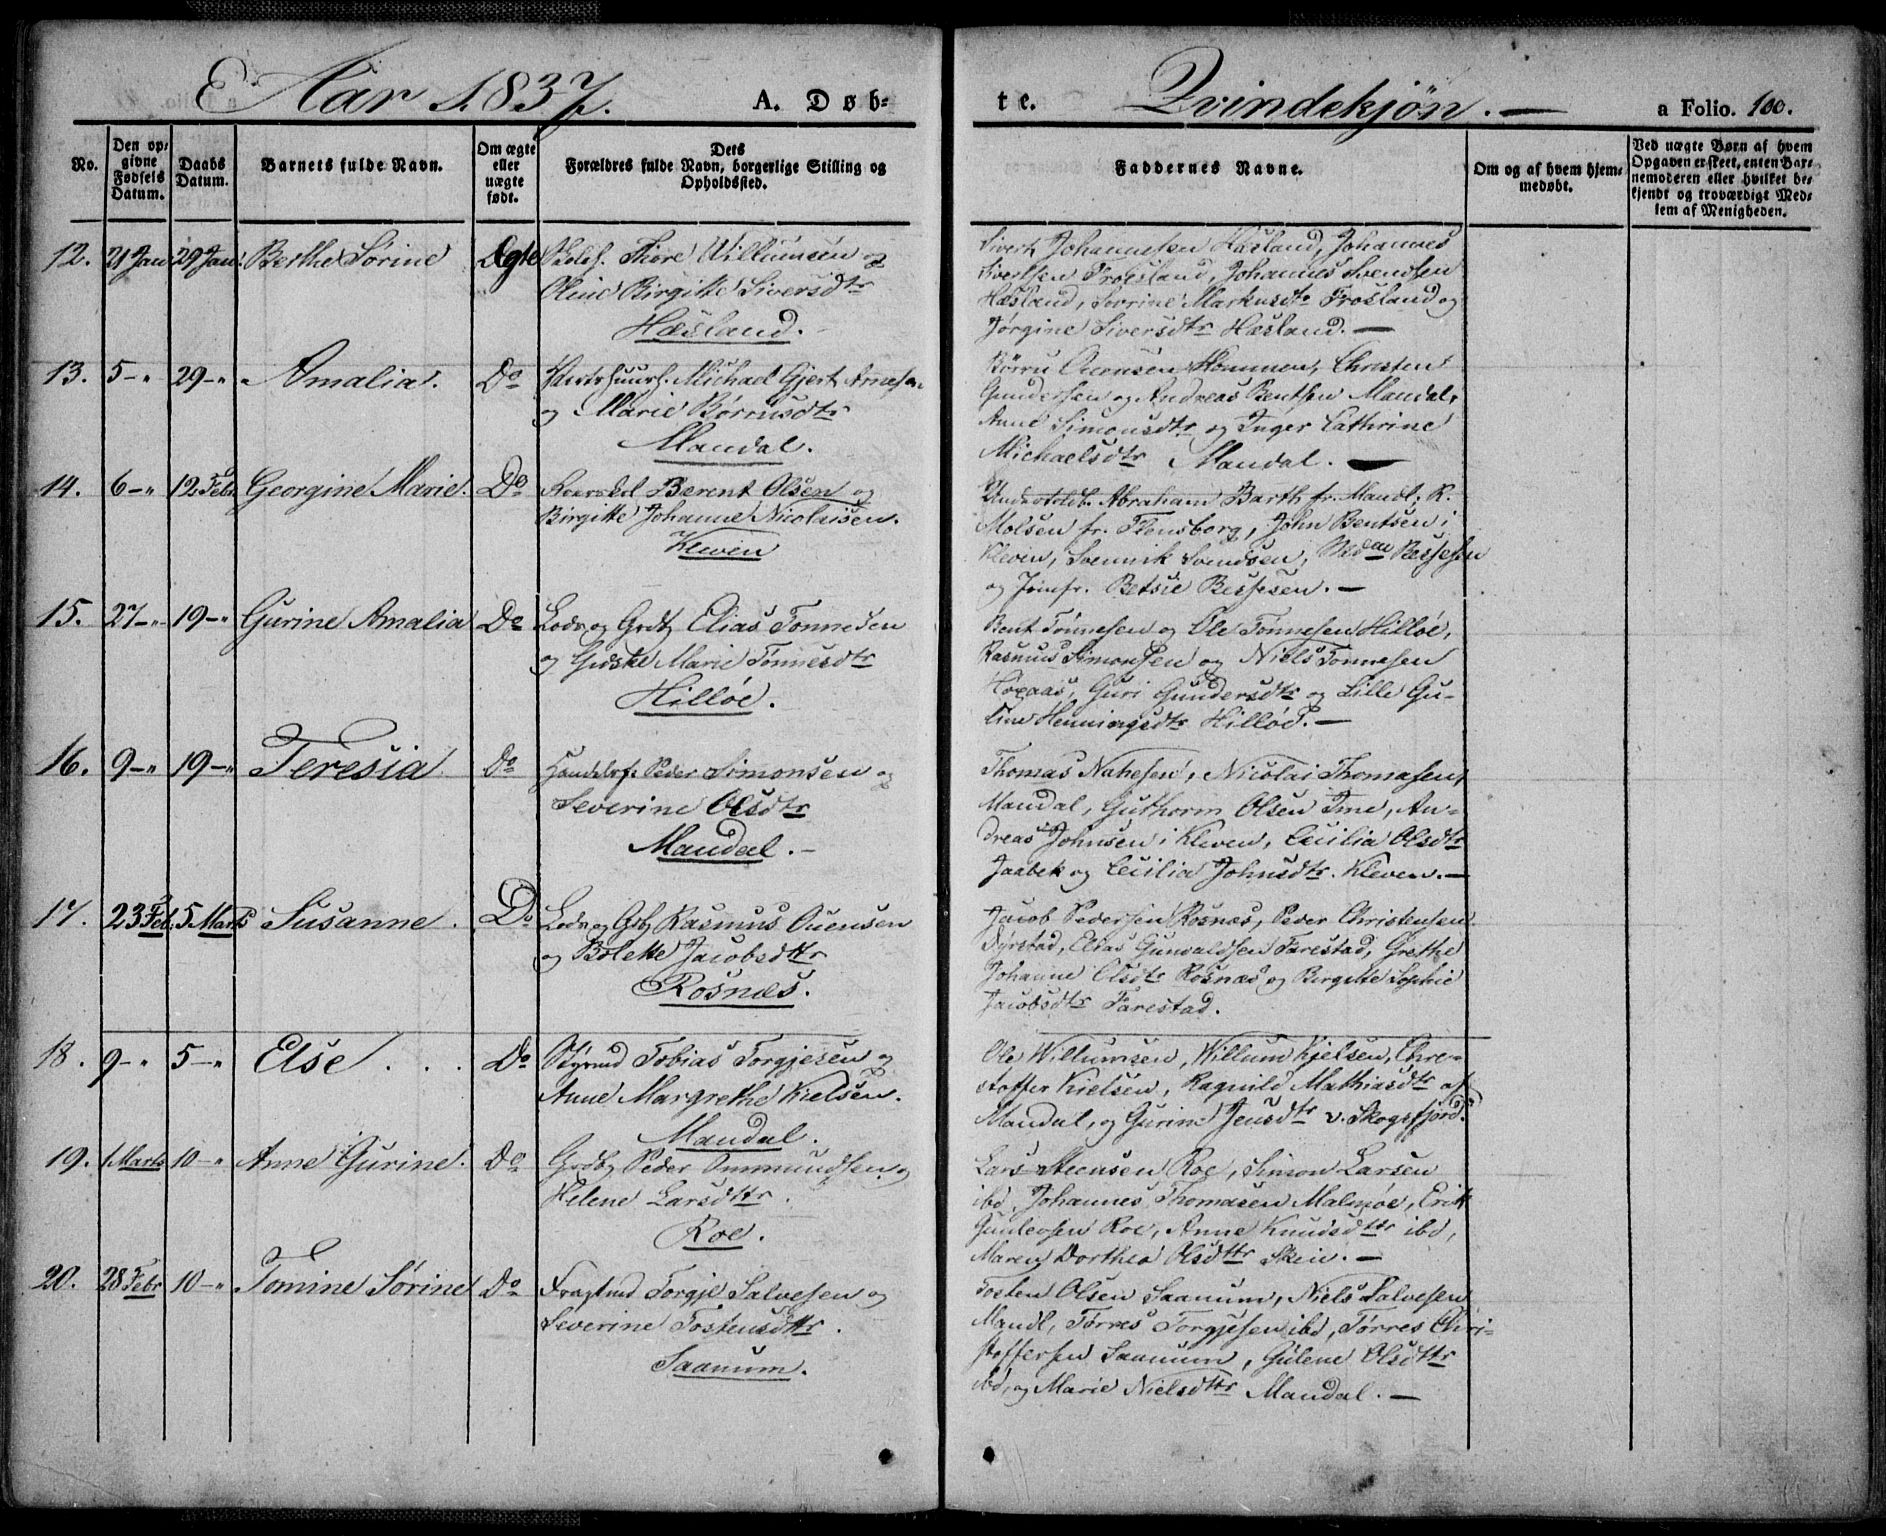 Aar 1837.
A. Døb-
te.
Qvindekjøn. —
a Folio. 100.
No.
Den op-
givne
Fødsels
Datum.
Daabs
Datum.
Barnets fulde Navn.
Om ægte
eller
uægte
født.
Dets
Forældres fulde Navn, borgerlige Stilling og
Opholdssted.
Faddernes Navne.
Om og af hvem hjem-
medøbt.
Ved uægte Børn af hvem
Opgaven er skeet, enten Bar-
nemoderen eller hvilket be-
kjendt og troværdigt Med-
lem af Menigheden.
12. 21 Jan 29 Jan. Berthe Sørine Ægte
Tore Willumsen og
Oline Birgitte Siversdtr
Hæsland.
Sivert Johannesen Hæsland, Johannes
Sivertsen Frøsland, Johannes Svendsen
Hæsland, Sørine Markusdtr Frøsland og
Jørgine Siversdtr Hæsland. —
13. 5 — " 29 — " Amalia. Do
Michael Gjert Arnesen
og Marie Børrusdtr
Mandal.
Børru Ouensen Hommen, Christen
Gundersen og Andreas Bentsen Mandal,
Anne Simonsdtr og Inger Cathrine
Michaelsdtr Mandal. —
14. 6 — " 12 Febr Georgine Marie. Do
Bærent Olsen og
Birgitte Johanne Nicolaisen.
Kleven
Abraham Barth fr. Mandl. R.
Molsen fr. Flensborg, John Bentsen i
Kleven, Svennik Svendsen, Mdme Bessesen
og Jomfr. Betsie Bessesen. —
15. 27 — " 19 — " Gurine Amalia Do
Lods og Grdbg Elias Tønnesen
og Giøske Marie Tønnesdtr
Hilløe.
Bent Tønnesen og Ole Tønnesen Hilløe,
Rasmus Simonsen og Niels Tønnesen
Høgaas, Guri Gundersdtr og Lille Gu-
rine Henningsdtr Hilløe. —
16. 9 — " 19 — " Teresia Do
Handelsf. Peder Simonsen og
Severine Olsdtr
Mandal. —
Thomas Nahesen, Nicolai Thomasen,
Mandal, Guthorm Olsen Ime, An-
dreas Johnsen i Kleven, Cecilia Olsdtr
Jaabek og Cecilia Johnsdtr. Kleven. —
17. 23 Feb. 5 Marts Susanne. Do
Lods og Grbg Rasmus Ouensen
og Bolette Jacobsdttr
Rosnæs.
Jacob Pedersen Rosnæs, Peder Christensen
Dyrstad, Elias Gunvaldsen Farestad, Grethe
Johanne Olsdtr Rosnæs og Birgitte Sophie
Jacobsdtr Farestad.
18. 9 — " 5 — " Else . . . Do
Styrmd Tobias Torgjesen og
Anne Margrethe Kielsen.
Mandal.
Ole Willumsen, Willum Kjelsen, Chri-
stoffer Kielsen, Ragnild Mathiasdtr af
Mandal, og Gurine Jensdtr v. Skogsfjord.
19. 1 Marts 10 — " Anne Gurine. Do
Grdbg Peder Ommundsen og
Helene Larsdttr.
Roe.
Lars Steensen Roe, Simon Larsen
ibd, Johannes Thomasen Malmøe, Erik
Gunleosen Roe, Anne Knudsdttr ibd,
Maren Dorthea Olsdttr Skein. —
20. 28 Febr 10 — " Tomine Sørine Do
Fragtmd Torgje Salvesen og
Severine Tostensdttr.
Saanum.
Tosten Olsen Saanum, Niels Salvesen
Mandl, Tørres Torgjesen ibd, Tørres Chri-
stoffersen Saanum, Gülene Olsdttr
ibd, og Marie Nielsdttr Mandal. —